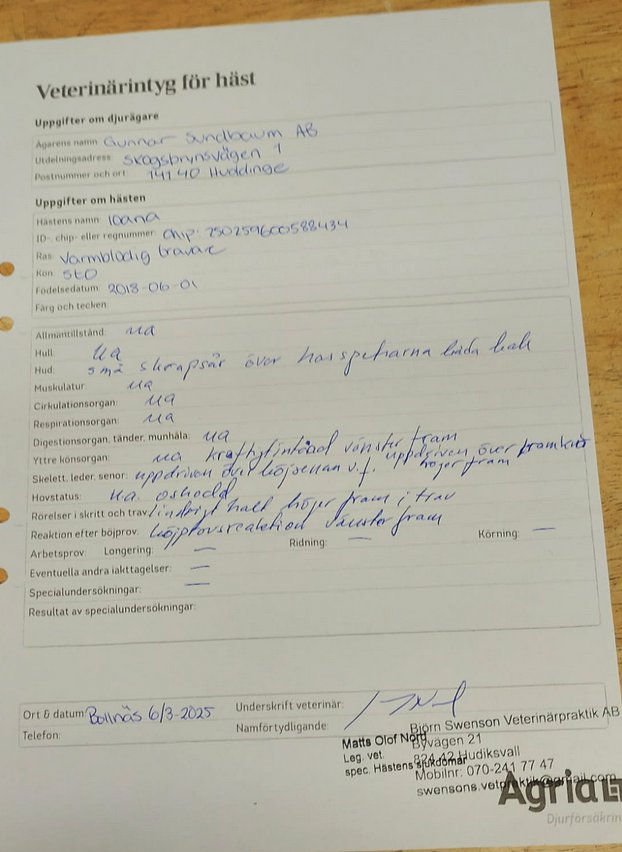 Veterinärintyg för häst
Uppgifter om djurägare
Ägarens namn: Gunnar Sundbaum AB
Utdelningsadress: Skogsbrynsvägen 1
Postnummer och ort: 14140 Huddinge
Uppgifter om hästen
Hästens namn: Ioana
ID-, chip- eller regnummer: Chip: 752259600588434
Ras: Varmblodig travare
Kön: Sto
Födelsedatum: 2018-06-01
Färg och tecken:
Allmäntillstånd: ua
Hull: ua
Hud: små skrapsår över hasspetsarna båda bak
Muskulatur: ua
Cirkulationsorgan: ua
Respirationsorgan: ua
Digestionsorgan, tänder, munhåla: ua
Yttre könsorgan: ua kraftigt vänster fram
Skelett, leder, senor: uppdriven över böjsenan v.f. uppdriven över framknä höger fram
Hovstatus: ua. oskodd
Rörelser i skritt och trav: lindrigt halt höger fram i trav
Reaktion efter böjprov: böjprovsreaktion vänster fram
Arbetsprov: Longering: — Ridning: — Körning: —
Eventuella andra iakttagelser: —
Specialundersökningar: —
Resultat av specialundersökningar:
Ort & datum: Bollnäs 6/3-2025 Underskrift veterinär:
Telefon: Namnförtydligande:
Björn Swenson Veterinärpraktik AB
Matts Olof Nord Byvägen 21
Leg. vet. 824 42 Hudiksvall
spec. Hästens sjukdomar Mobilnr: 070-241 77 47
swensons.vetpraktik@gmail.com
Agria
Djurförsäkrin